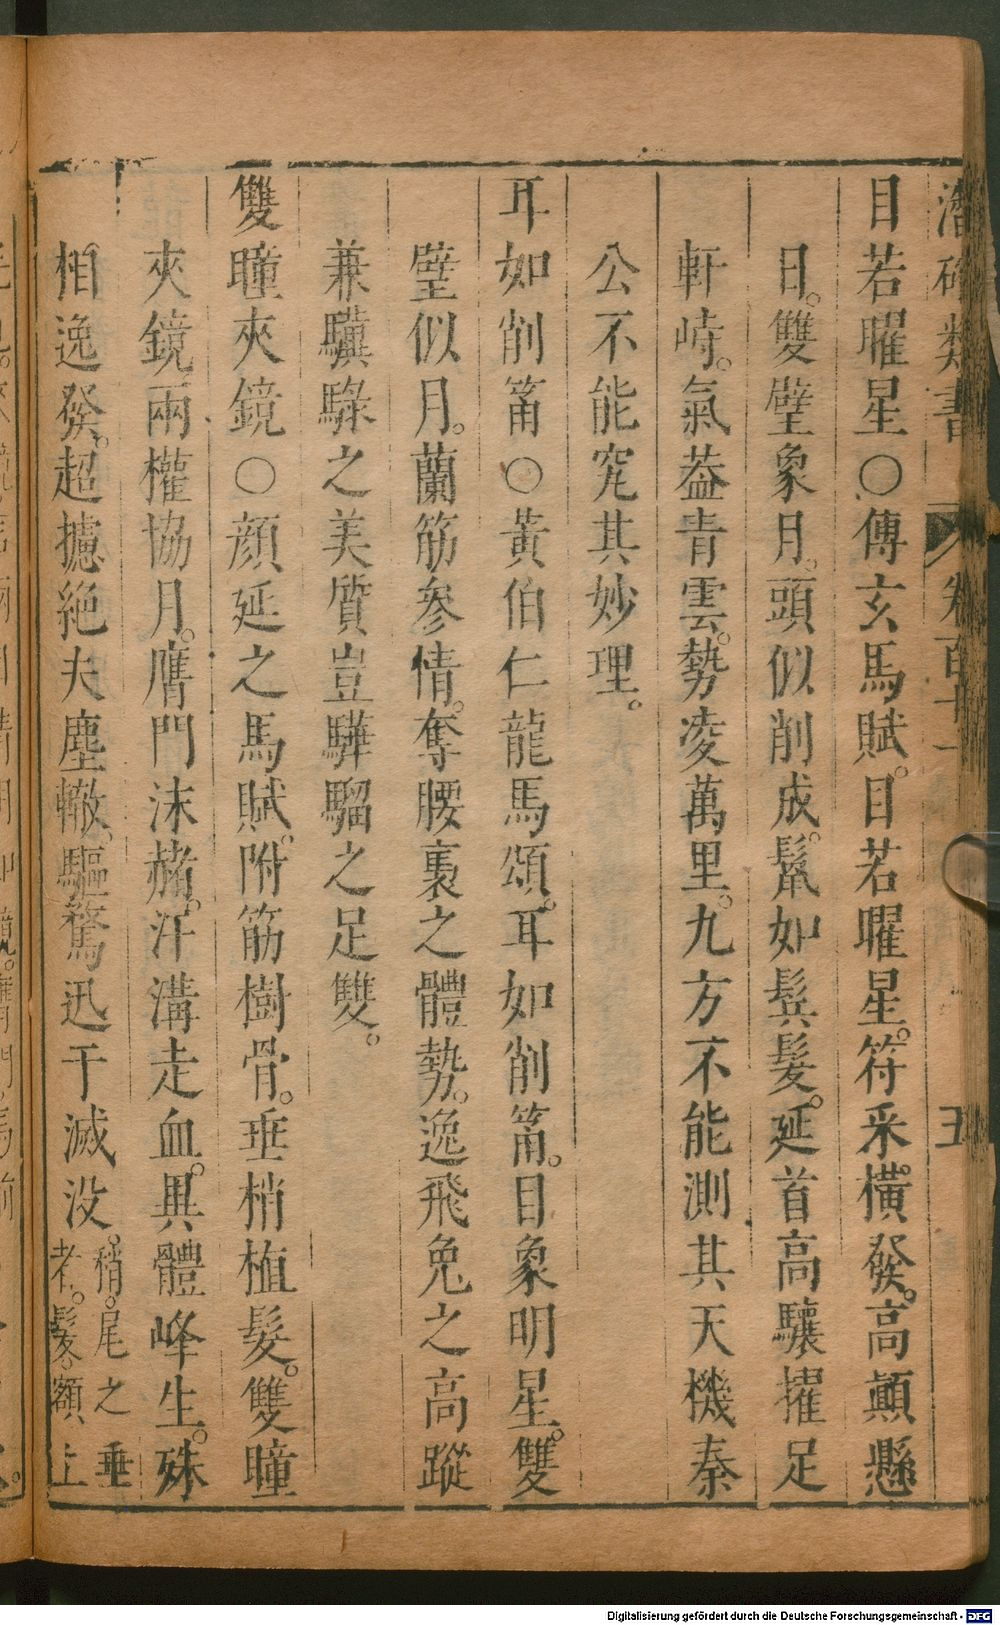 潛確類書 卷百十一 五
目若曜星○傅玄馬賦。目若曜星。符采橫發。高顛懸
日。雙璧象月。頭似削成。鬣如䯻髮。延首高驤擢足
軒峙。氣葢青雲。勢凌萬里。九方不能測其天機秦
公不能究其妙理。
耳如削筩○黃伯仁龍馬頌。耳如削筩。目象明星。雙
璧似月。蘭筋參情。奪腰褭之體勢。逸飛兔之高蹤
兼驥騄之美質豈驊騮之足雙。
雙瞳夾鏡○顔延之馬賦。附筋樹骨。垂梢植髮。雙瞳
夾鏡兩權協月。膺門沫赭。汗溝走血。異體峰生。殊
相逸發。超攄絶夫塵轍。驅騖迅于滅没。稍。尾之垂
者。髮。額上
Digitalisierung gefördert durch die Deutsche Forschungsgemeinschaft - DFG